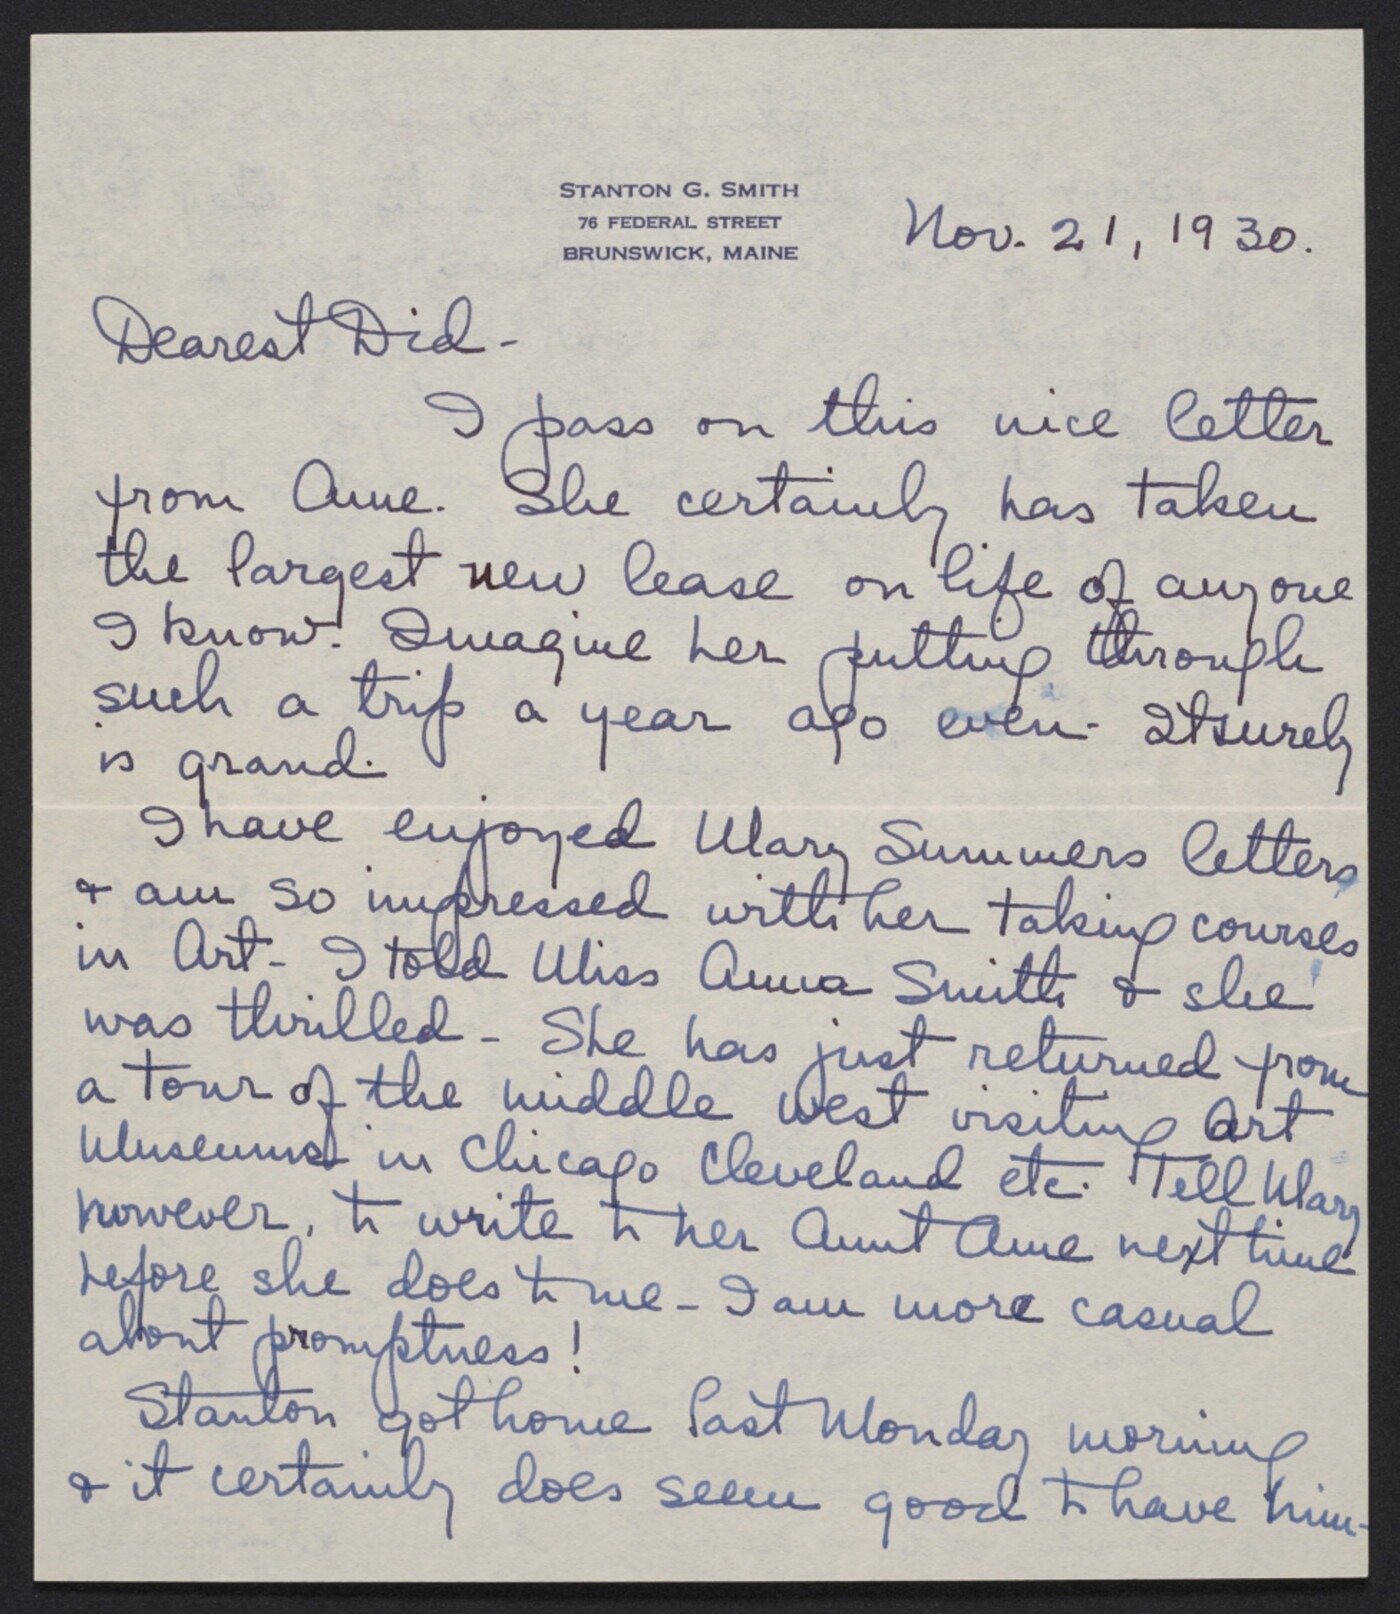 STANTON G. SMITH
76 FEDERAL STREET
BRUNSWICK, MAINE
Nov. 21, 1930.
Dearest Did -
I pass on this nice letter
from Anne. She certainly has taken
the largest new lease on life of anyone
I know. Imagine her putting through
such a trip a year ago even - It surely
is grand.
I have enjoyed Mary Summers letters
& am so impressed with her taking courses
in Art - I told Miss Anna Smith & she
was thrilled - She has just returned from
a tour of the middle west visiting Art
Museums in Chicago Cleveland etc. Tell Mary
however, to write to her Aunt Anne next time
before she does to me - I am more casual
about promptness!
Stanton got home last Monday morning
& it certainly does seem good to have him -